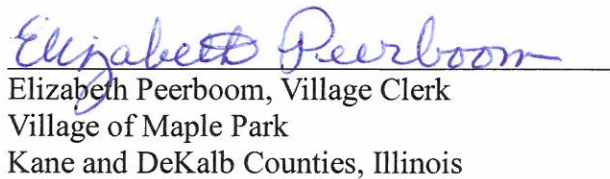 Elizabeth Peerboom
Elizabeth Peerboom, Village Clerk
Village of Maple Park
Kane and DeKalb Counties, Illinois